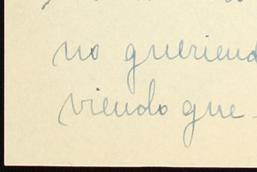 no queriend
viendo que